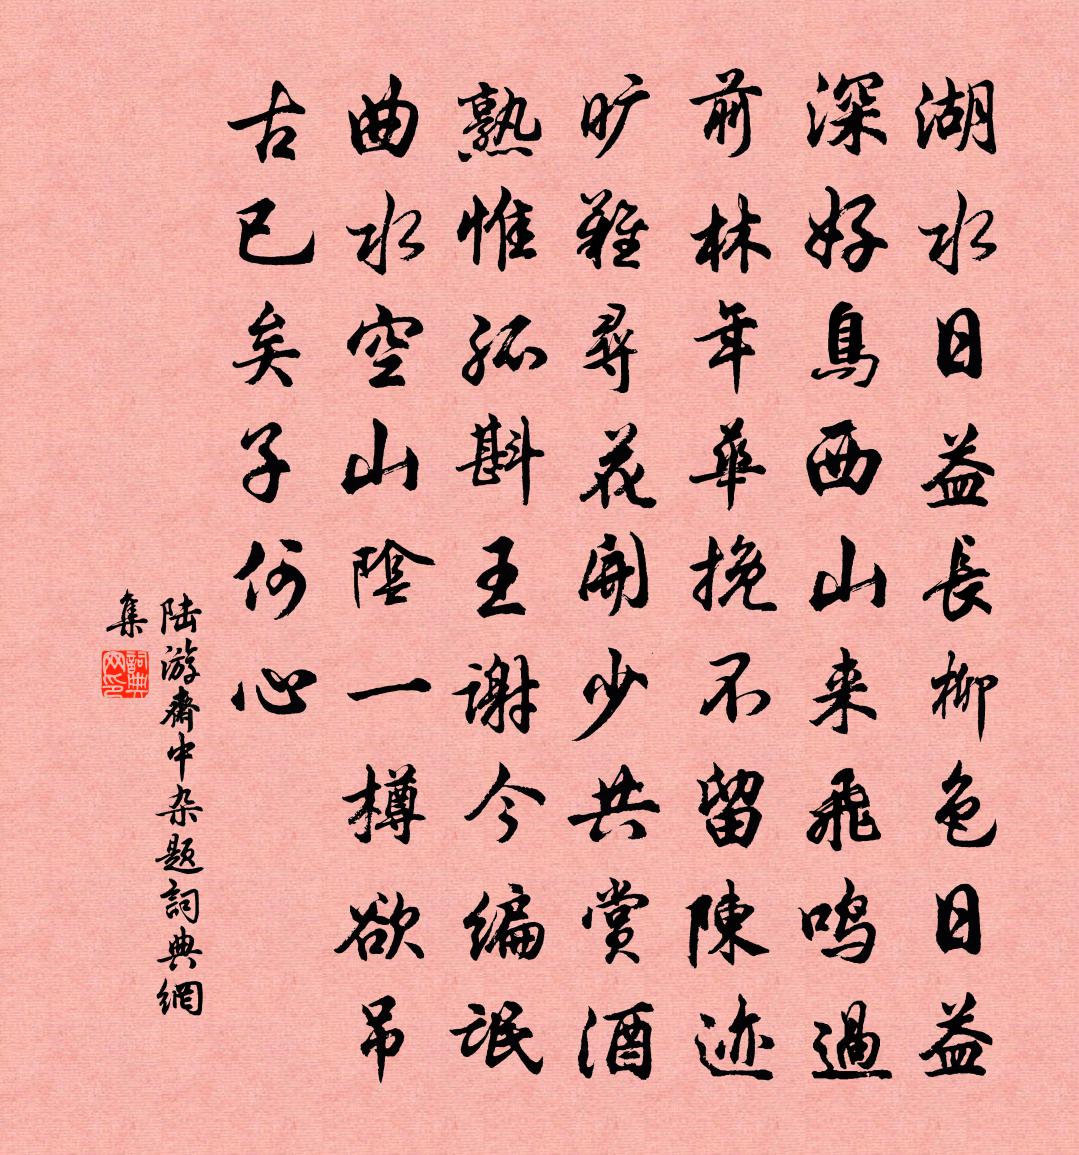 湖水日益長柳色日益
深好鳥西山来飛鳴過
前林年華挽不留陳迹
旷難尋花開少共赏酒
熟惟孤斟王謝今編氓
曲水空山陰一樽欲吊
古已矣子何心
陆游斋中杂题詞典網
集
詞典网印